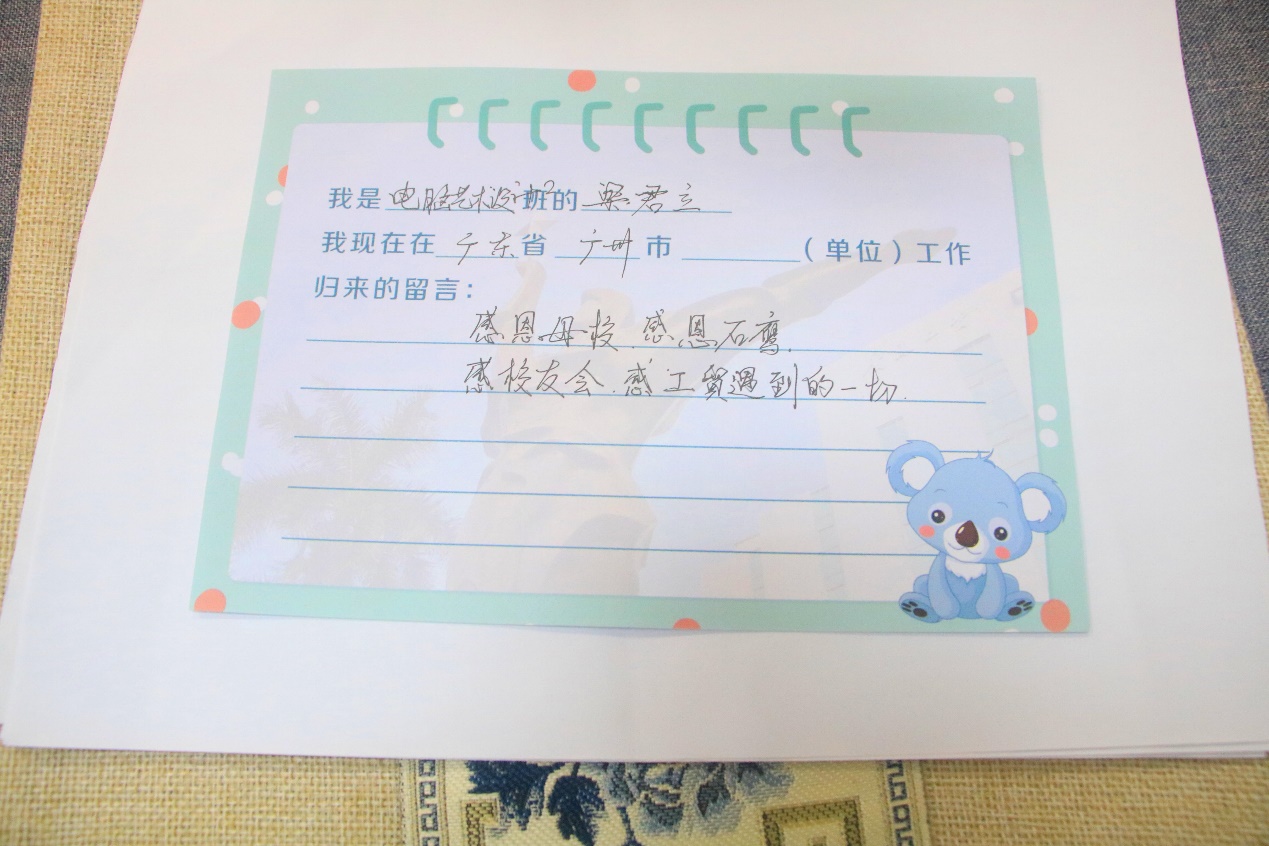 我是电脑艺术设计班的梁君立
我现在在广东省广州市（单位）工作
归来的留言：
感恩母校.感恩石鹰.
感校友会.感工贸遇到的一切.